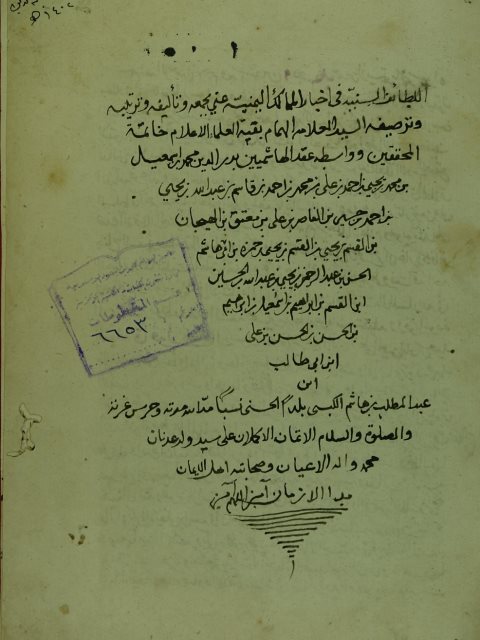 اللطائف السنية في اخبار الممالك اليمنية عني بجمعه وتأليفه وترتيبه
وترصيفه السيد العلامه الهمام بقية العلماء الاعلام خاتمة
المحققين وواسطة عقد الهاشميين بدر الدين محمد بن اسمعيل
بن محمد بن يحيى بن احمد بن علي بن محمد بن احمد بن قاسم بن عبد الله بن يحيى
بن احمد بن حسين بن الناصر بن علي بن معتق بن الهيجان
بن القسم بن يحيى بن القسم بن يحيى بن حمزه بن ابي هاشم
الحسن بن عبد الرحمن بن يحيى بن عبد الله بن الحسين
ابن القسم بن ابراهيم بن اسمعيل بن ابراهيم
بن الحسن بن الحسن بن علي
ابن ابي طالب
ابن
عبد المطلب بن هاشم الكبسي بلداً الحسني نسباً مد الله مدته وحرس غرته
والصلوة والسلام الاتمان الاكملان على سيد ولد عدنان
محمد واله الاعيان وصحابته اهل الايمان
مدا الازمان آمين اللهم آمين
٦٦٥٣